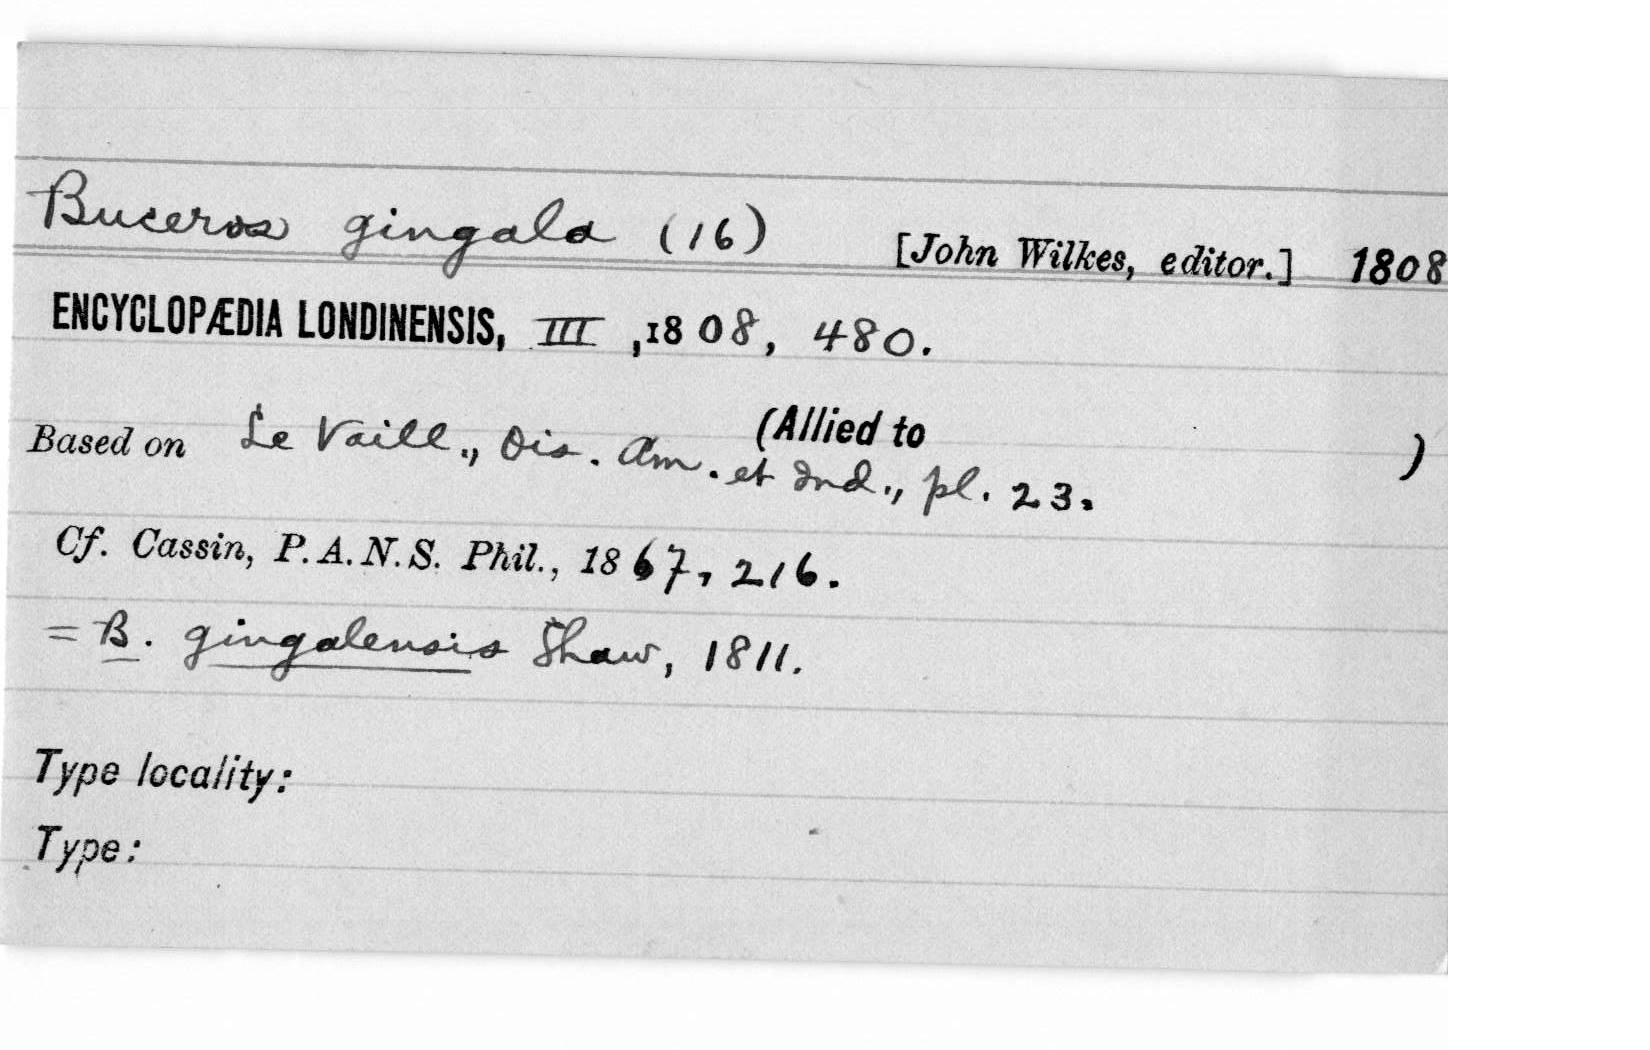 Buceros gingala (16) [John Wilkes, editor.] 1808
ENCYCLOPÆDIA LONDINENSIS, III, 1808, 480.
(Allied to )
Based on Le Vaill., Ois. Am. et Ind., pl. 23.
Cf. Cassin, P. A. N. S. Phil., 1867, 216.
= B. gingalensis Shaw, 1811.
Type locality:
Type: